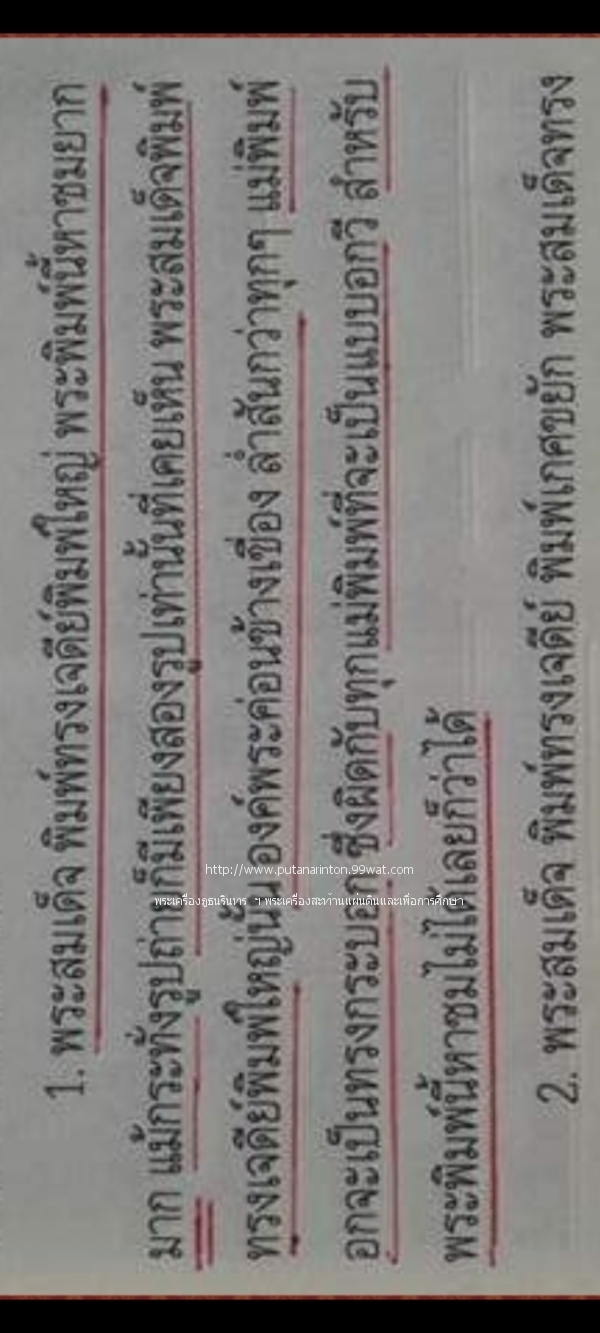 1. พระสมเด็จ พิมพ์ทรงเจดีย์พิมพ์ใหญ่ พระพิมพ์นี้หาชมยาก
มาก แม้กระทั่งรูปถ่ายก็มีเพียงสองรูปเท่านั้นที่เคยเห็น พระสมเด็จพิมพ์
ทรงเจดีย์พิมพ์ใหญ่นั้น องค์พระค่อนข้างเขื่อง ล่ำสันกว่าทุกๆ แม่พิมพ์
อกจะเป็นทรงกระบอก ซึ่งผิดกับทุกแม่พิมพ์ที่จะเป็นแบบอกวี สำหรับ
พระพิมพ์นี้หาชมไม่ได้เลยก็ว่าได้
2. พระสมเด็จ พิมพ์ทรงเจดีย์ พิมพ์เกศขยัก พระสมเด็จทรง
http://www.putanarinton.99wat.com
พระเครื่องภูธนรินทร ฯ พระเครื่องสะท้านแผ่นดินและเพื่อการศึกษา